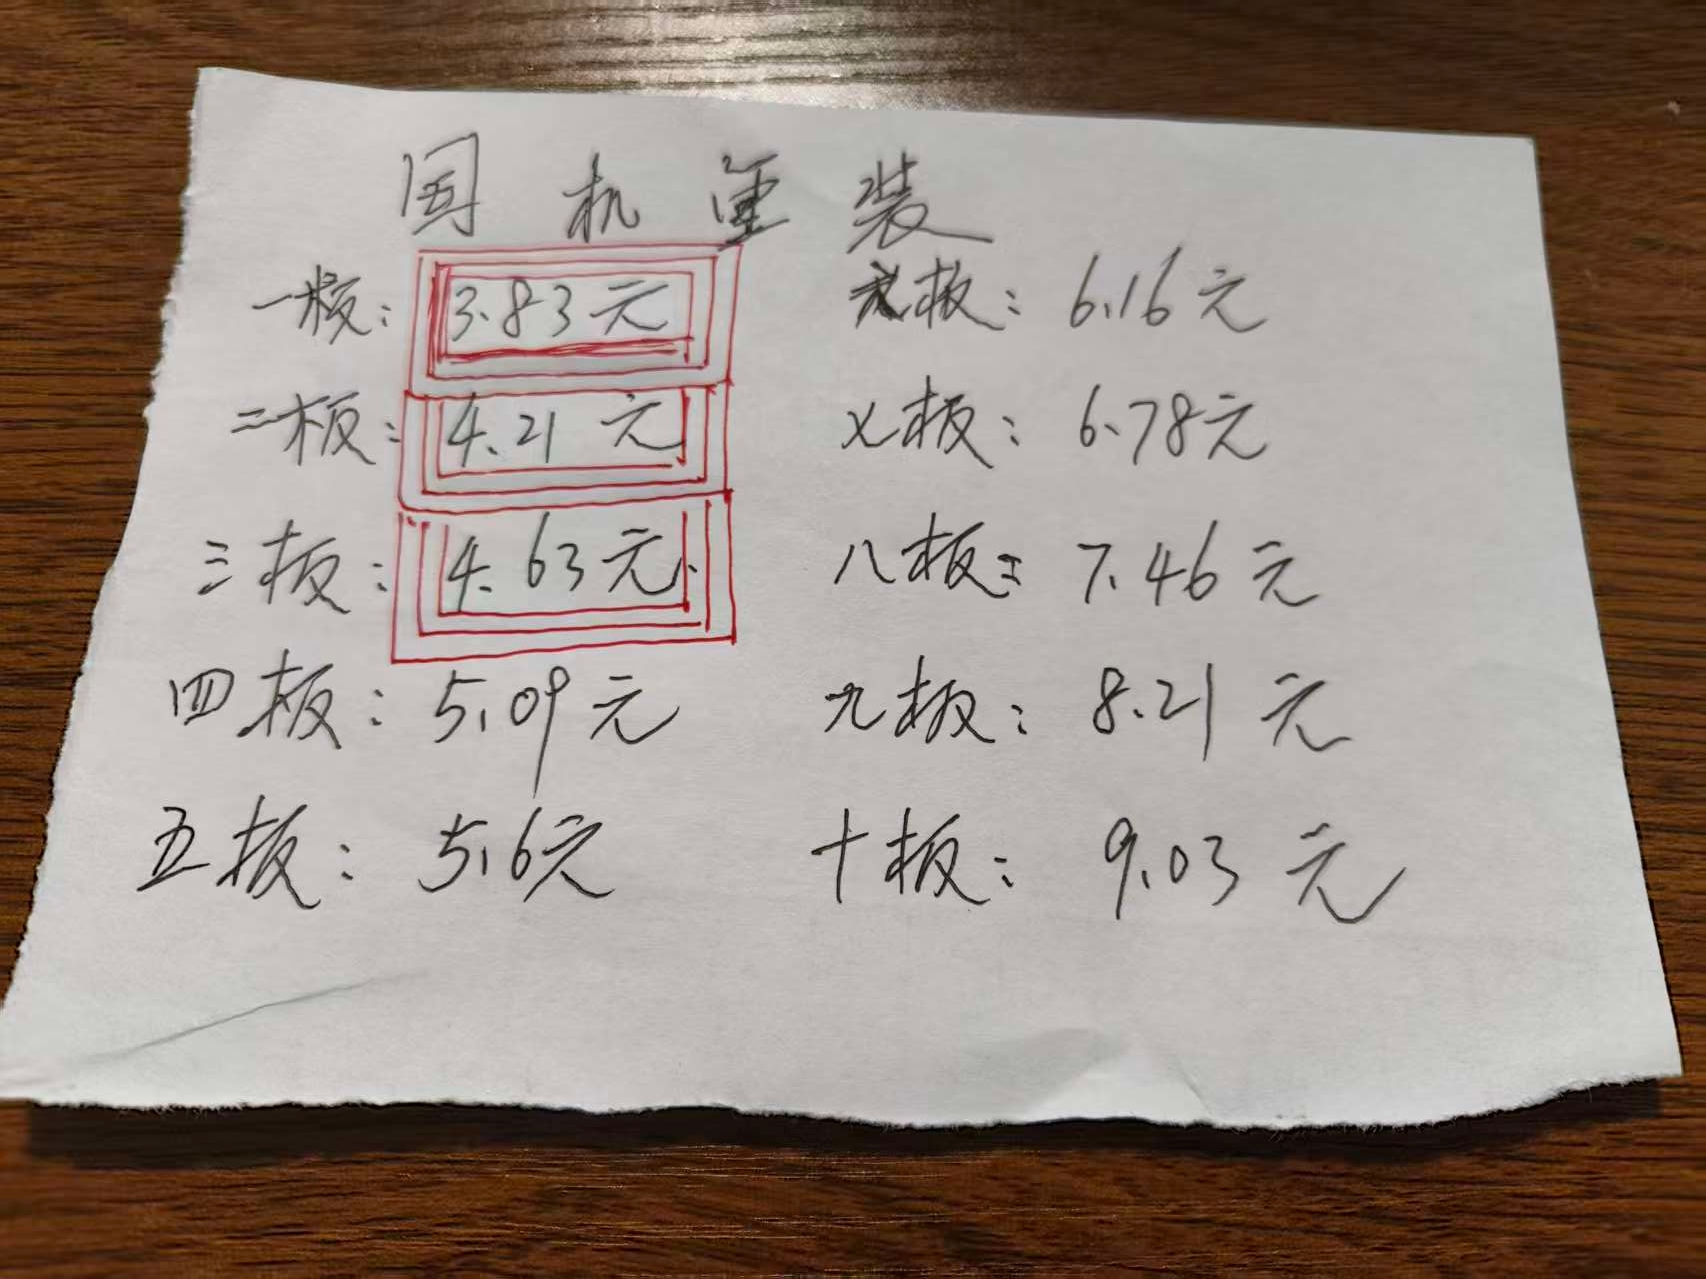 国机重装
一板：3.83元 六板：6.16元
二板：4.21元 七板：6.78元
三板：4.63元 八板：7.46元
四板：5.09元 九板：8.21元
五板：5.6元 十板：9.03元